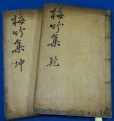 梅竹集 乾
梅竹集 坤